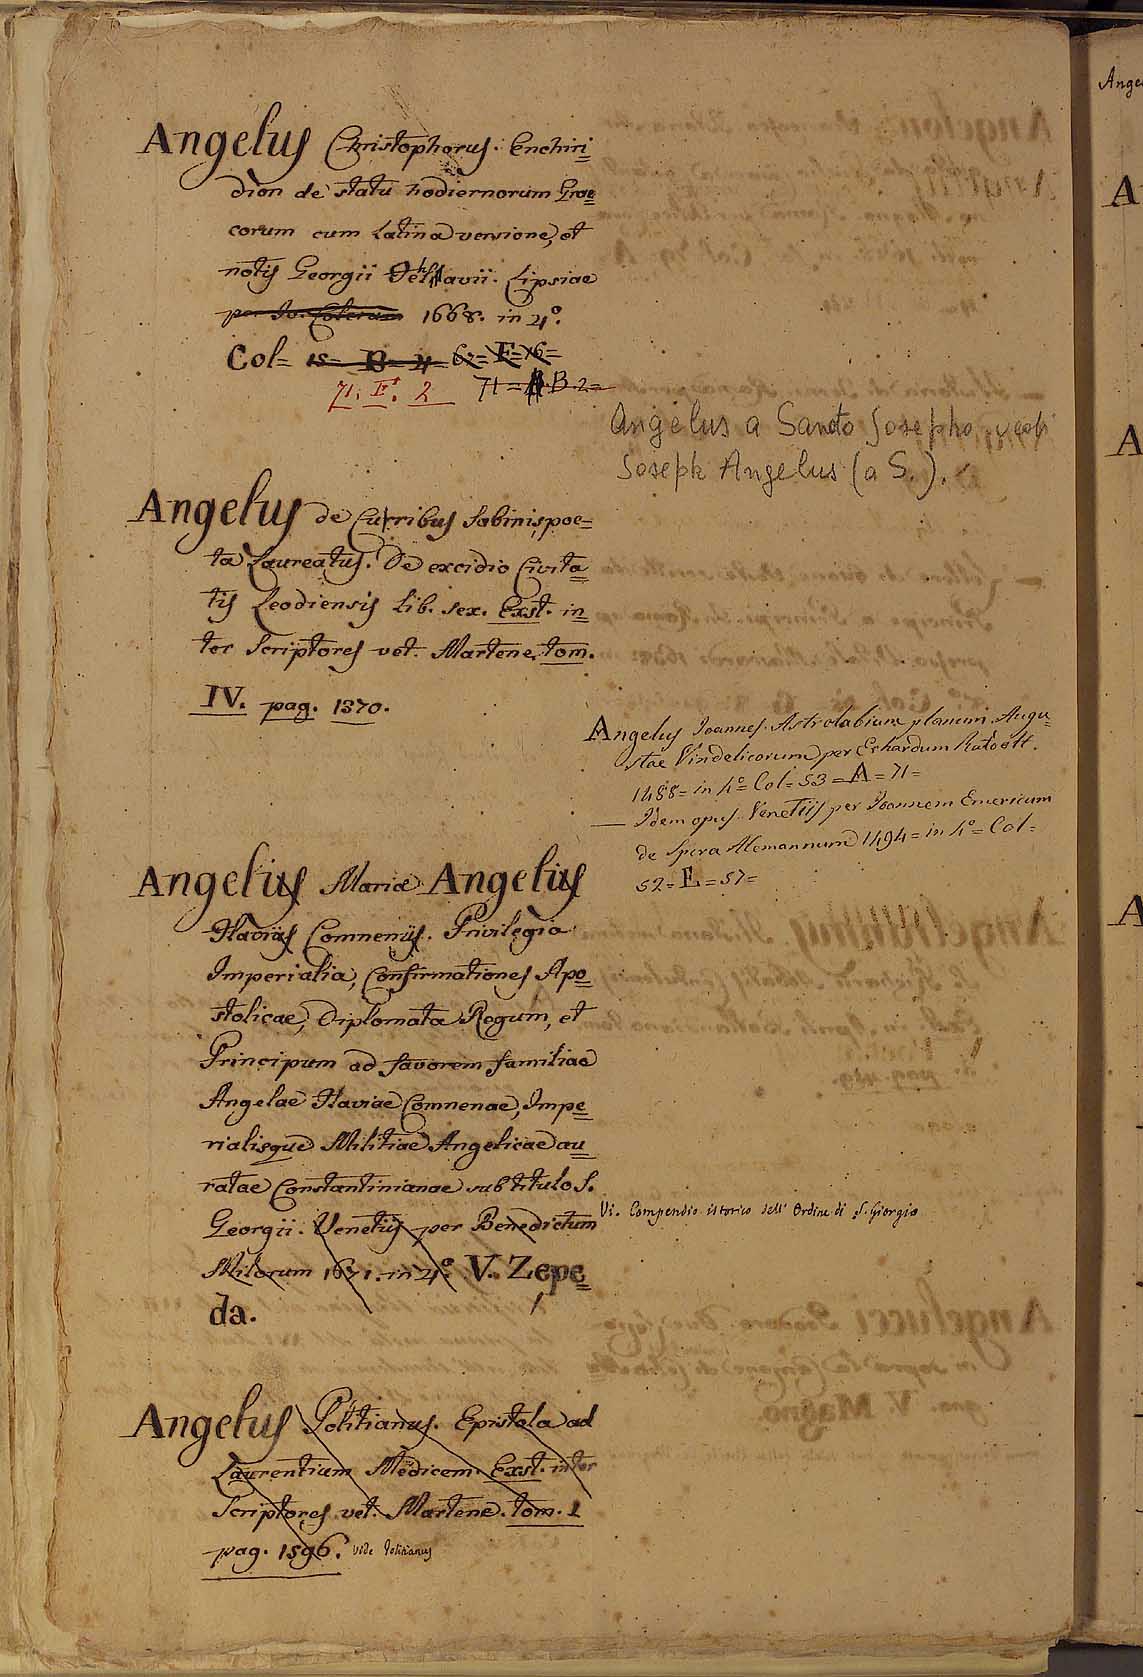 Angelus Christophorus. Enchiri=
dion de statu hodiernorum Grae=
corum cum Latina versione, et
notis Georgii Fehlavii. Lipsiae
per Io. Colerum 1668. in 4º.
Col= 15= B= 4= 67= F= 16=
71. F. 2 71= B. 2=
Angelus a Sancto Josepho
Joseph Angelus (a S.).
Angelus de Curribus Sabinis, poe=
ta Laureatus. De excidio Civita=
tis Leodiensis Lib. sex. Exst. in=
ter Scriptores vet. Martene. tom.
IV. pag. 1370.
Angelus Ioannes. Astrolabium planum. Augu=
stae Vindelicorum per Erhardum Ratdolt.
1488= in 4º= Col= 53= A= 71=
— Idem opus. Venetiis per Ioannem Emericum
de Spira Alemannum 1494= in 4º= Col=
52= E= 57=
Angelius Maria Angelius
Flavius Comnenus. Privilegia
Imperialia, Confirmationes Apo=
stolicae, Diplomata Regum, et
Principum ad favorem familiae
Angelae Flaviae Comnenae, Impe=
rialisque Militiae Angelicae au=
ratae Constantinianae sub titulo S.
Georgii. Venetiis per Benedictum
Milocum 1671. in 4º. V. Zepe=
da.
Vi. Compendio istorico dell' Ordine di S. Giorgio
Angelus Politianus. Epistola ad
Laurentium Medicem. Exst. inter
Scriptores vet. Martene. tom. I
pag. 1596. vide Politianus
Ange
A
A
A